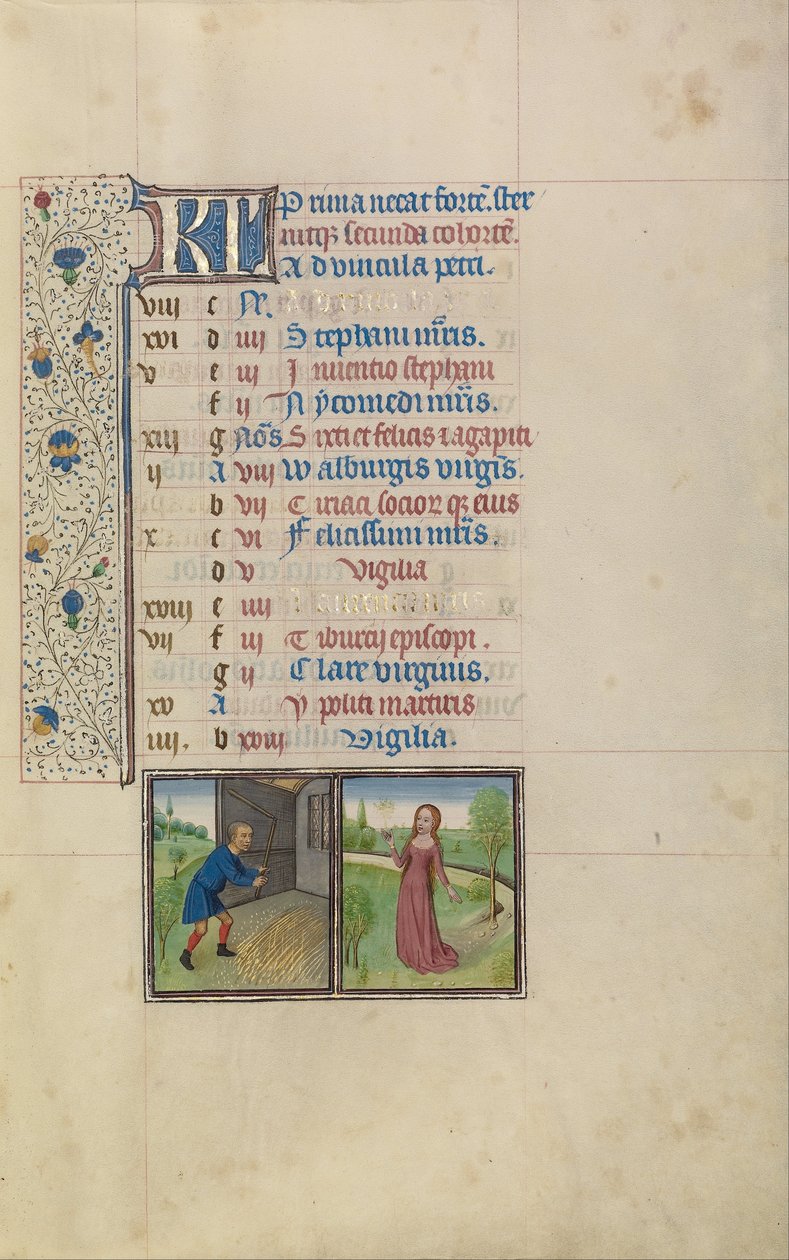 KL Prima necat fortē. ster
nitqꝫ secunda cohortē.
Ad vincula petri.
viii c N.
xvi d iiij Stephani mr̄is.
v e iij Inuentio stephani
f ij Nycomedi mr̄is.
xiij g Nōs Sixti et felicis ⁊ agapiti
ij A viij Walburgis virgīs.
b vij Ciriaci socior qꝫ eius
x. c vi Felicissimi mr̄is.
d v Vigilia
xviij e iiij
vij f iij Tiburcij episcopi.
g ij Clare virginis.
xv A Ypoliti martiris
iiij. b xviij Vigilia.